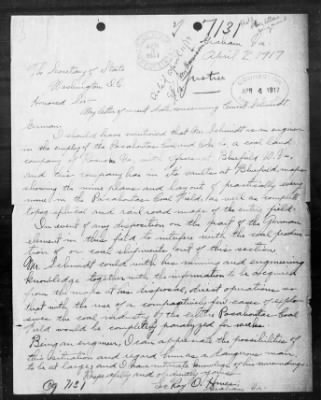 7131
Graham, Va.
April 2, 1917
The Secretary of State
Washington D.C.
Justice
APR 4 1917
Honored Sir:-
My letter of recent date concerning Schmidt,
German.
I should have mentioned that Mr. Schmidt is an engineer
in the employ of the Pocahontas Coal and Coke is a coal land
company of Roanoke Va., with offices at Bluefield W. Va.,
and this company has in its vaults at Bluefield, maps
showing the mine plans and layout of practically every
mine in the Pocahontas Coal Field, as well as complete
topographical and rail road maps of the entire field.
In event of any disposition on the part of the German
element in this field to interfere with the coal produc-
tion of or coal shipments out of this section
Mr. Schmidt could with his mining and engineering
knowledge together with the information to be acquired
from the maps at his disposal, direct operations so
that with the use of a comparatively few cases of explo-
sives the coal industry of the entire Pocahontas Coal
Field would be completely paralyzed for weeks.
Being an engineer, I can appreciate the possibilities of
this situation and regard him as a dangerous man
to be at large; and I have intimate knowledge of his surroundings.
Respectfully and obediently yours,
Roy O.
Graham, Va.
Cg 7131